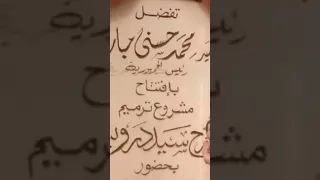 تفضل
محمد حسني
رئيس الجمهورية
بافتتاح
مشروع ترميم
سيد درويش
بحضور